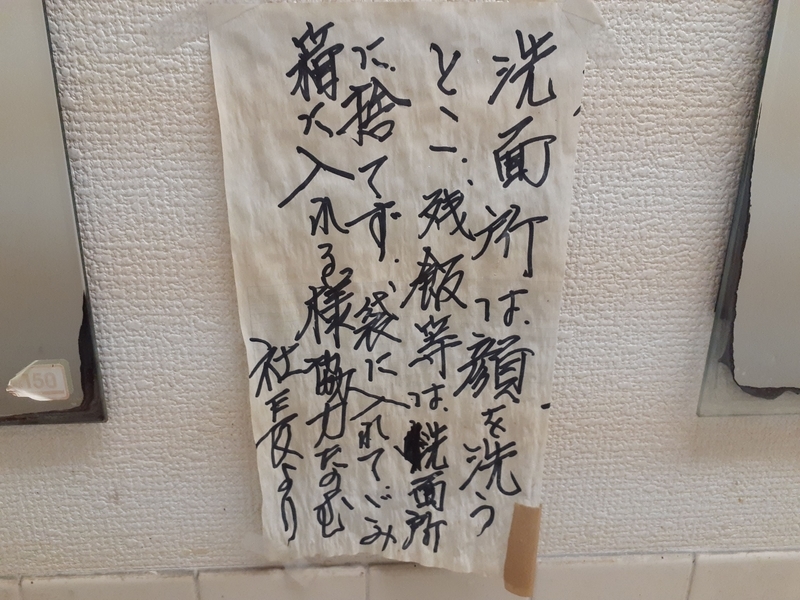 洗面所は顔を洗う
とこ、残飯等は洗面所
に捨てず、袋に入れてごみ
箱へ入れる様協力たのむ
社長より
150